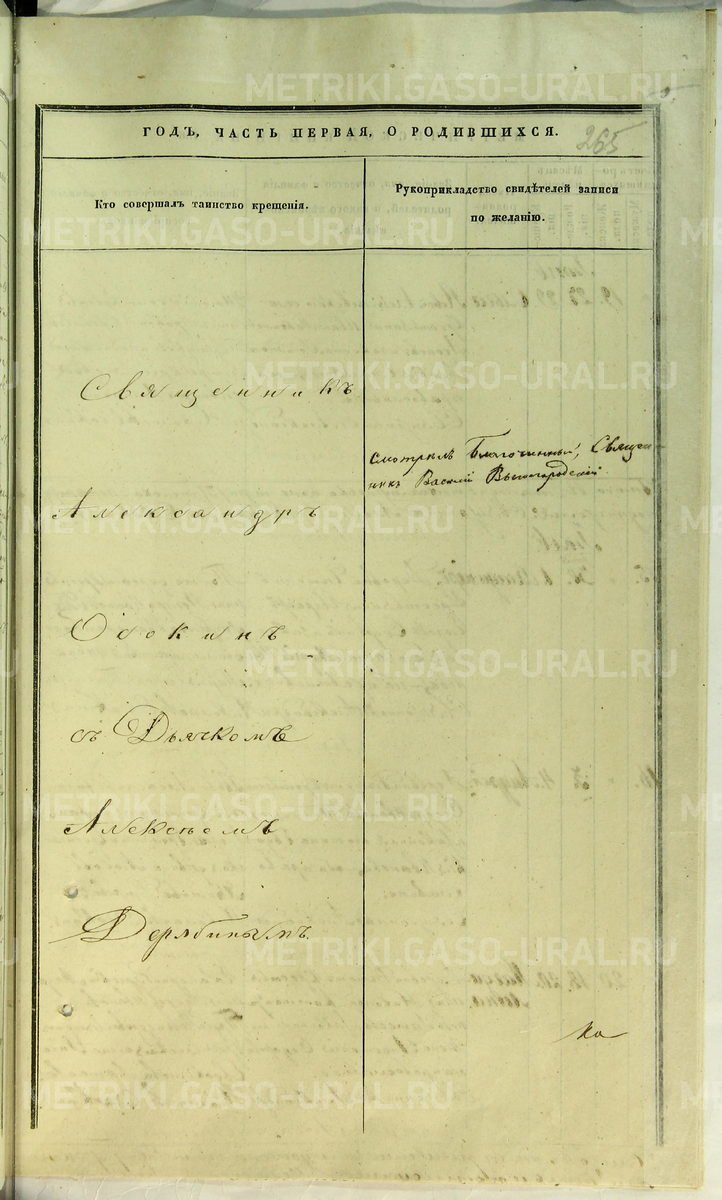 265
ГОДЪ, ЧАСТЬ ПЕРВАЯ, О РОДИВШИХСЯ.
Кто совершалъ таинство крещенія.
Рукоприкладство свидѣтелей записи
по желанію.
Священникъ
Александръ
Осокинъ
съ Дьячкомъ
Алексѣемъ
Дерябинымъ.
Смотрилъ Благочинный, Священ-
никъ Василій Вышегородскій.
METRIKI.GASO-URAL.RU